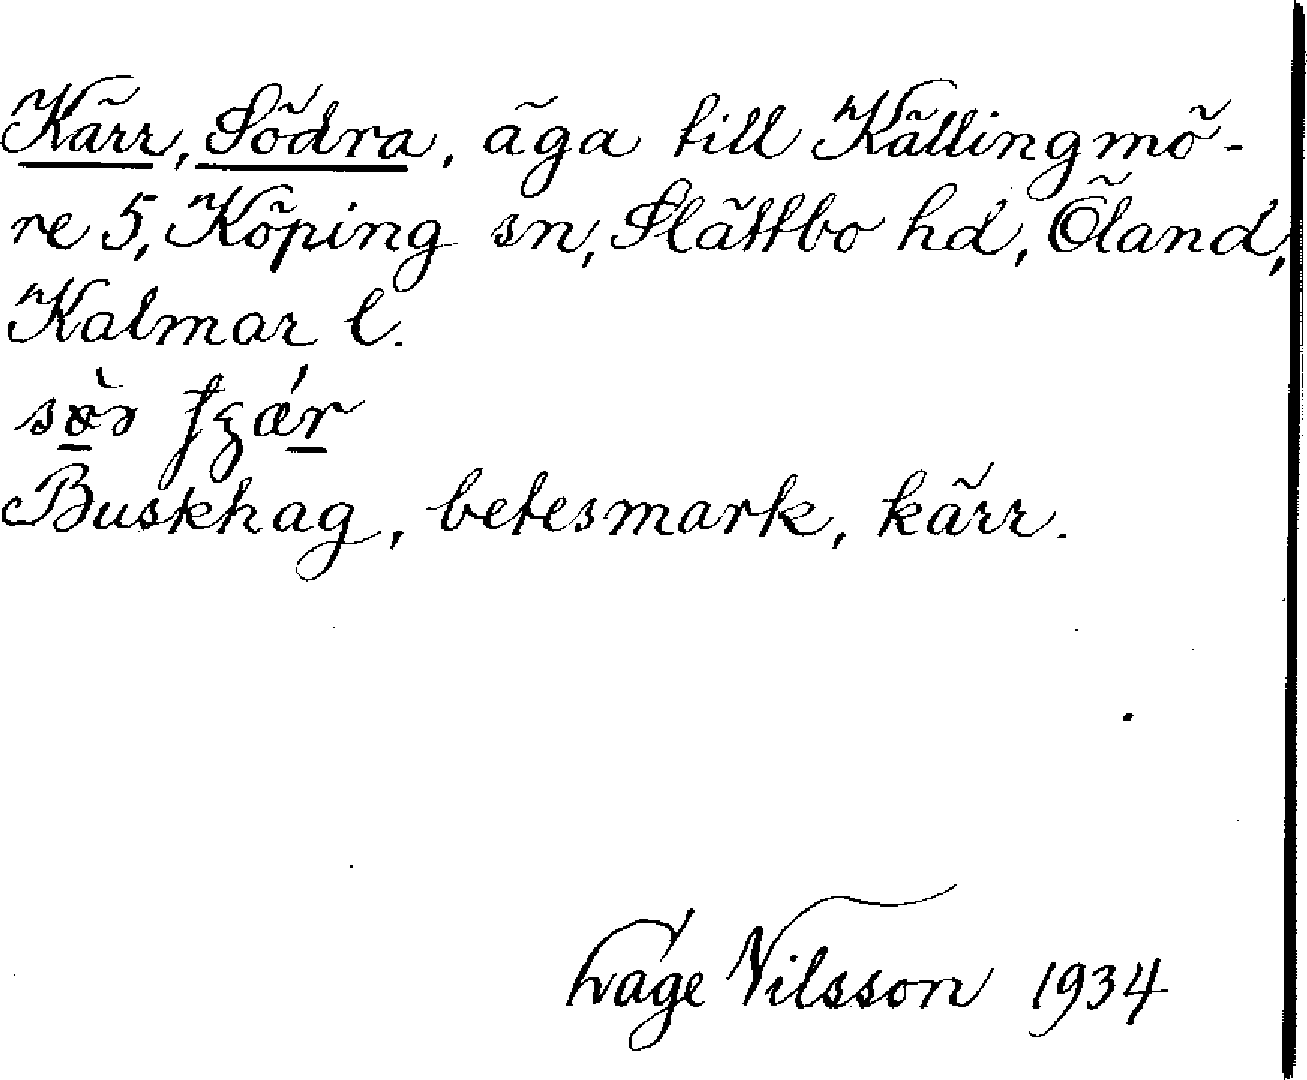 Kärr, Södra, äga till Källingmö-
re 5, Köping sn, Slättbo hd, Öland,
Kalmar l.
Buskhag, betesmark, kärr.
Nilsson 1934